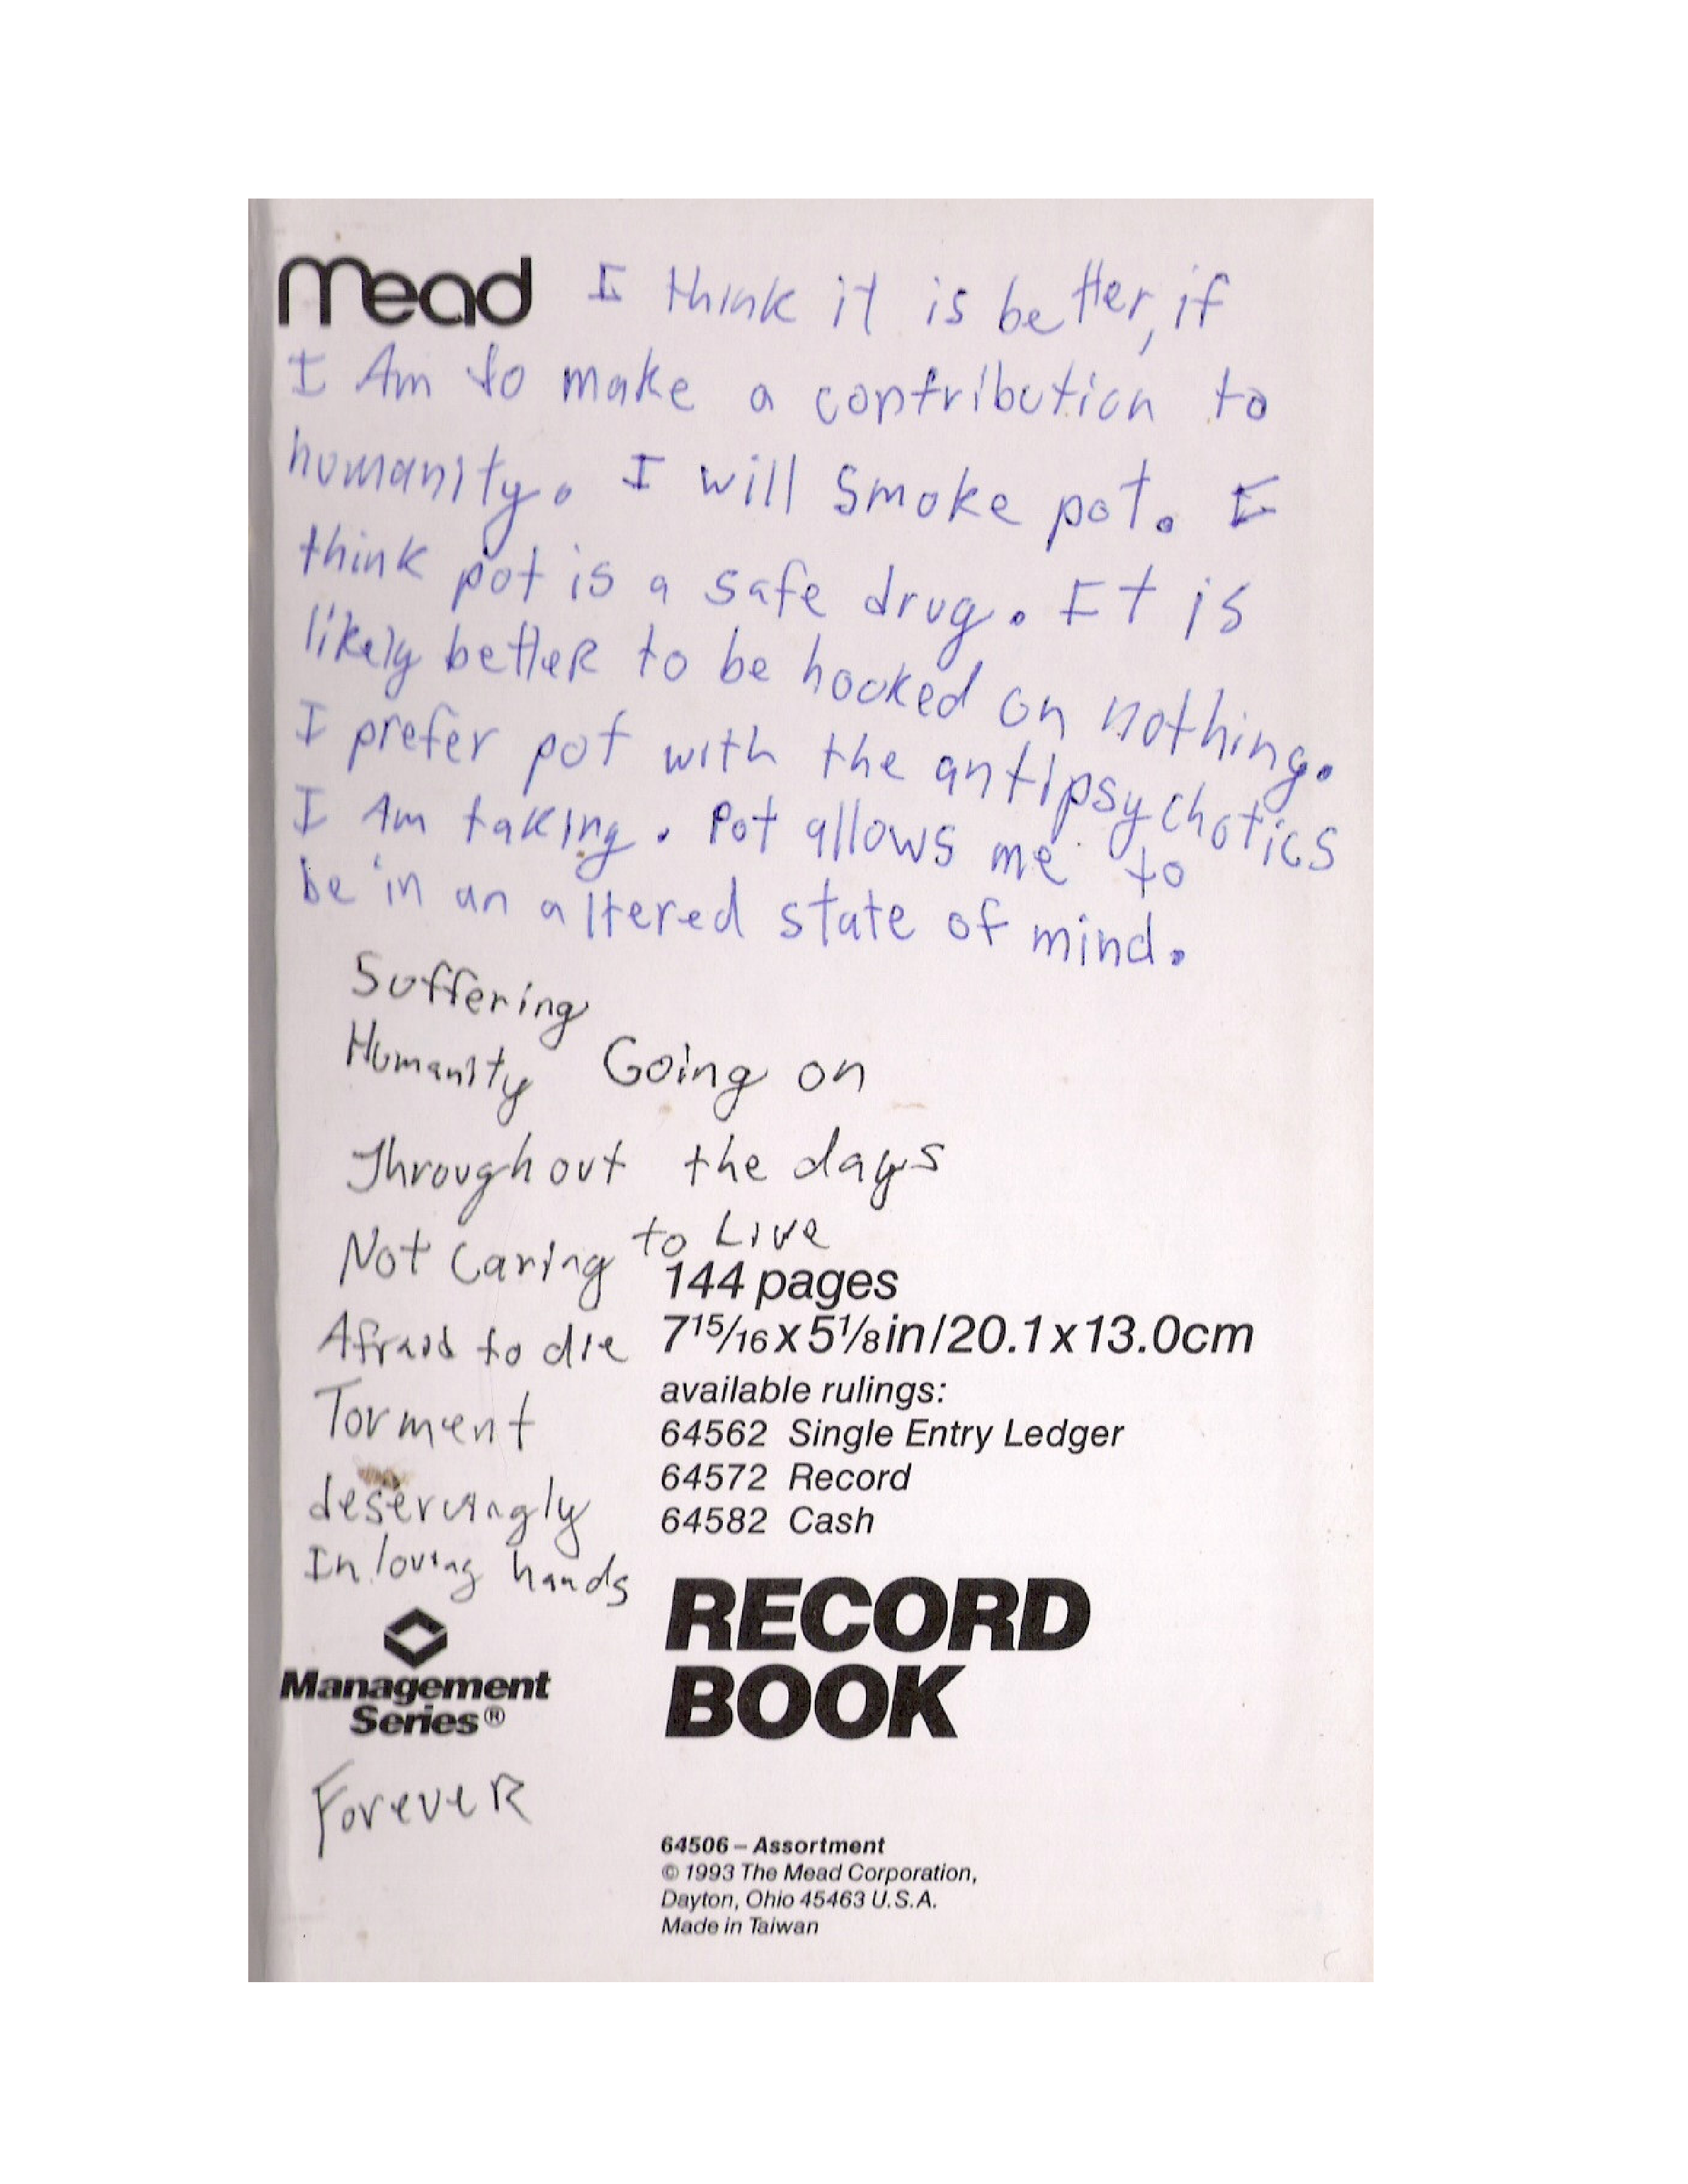 Mead I think it is better, if
I Am to make a contribution to
humanity. I will smoke pot. I
think pot is a safe drug. It is
likely better to be hooked on nothing.
I prefer pot with the antipsychotics
I Am taking. Pot allows me to
be in an altered state of mind.
Suffering
Humanity Going on
Throughout the days
Not Caring to Live
144 pages
Afraid to die 7 15/16 x 5 1/8 in/20.1 x 13.0cm
available rulings:
Torment
64562 Single Entry Ledger
64572 Record
deservingly
64582 Cash
In loving hands
RECORD
BOOK
Management
Series®
Forever
64506 – Assortment
© 1993 The Mead Corporation,
Dayton, Ohio 45463 U.S.A.
Made in Taiwan